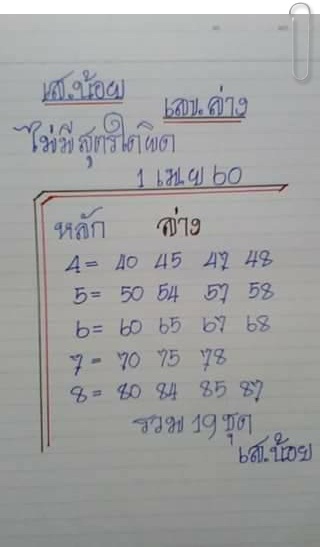 เส.น้อย
เลข.ล่าง
ไม่มีสูตรใดผิด
1 เมย 60
หลัก ล่าง
4= 40 45 47 48
5= 50 54 57 58
6= 60 65 67 68
7= 70 75 78
8= 80 84 85 87
รวม 19 ชุด
เส.น้อย